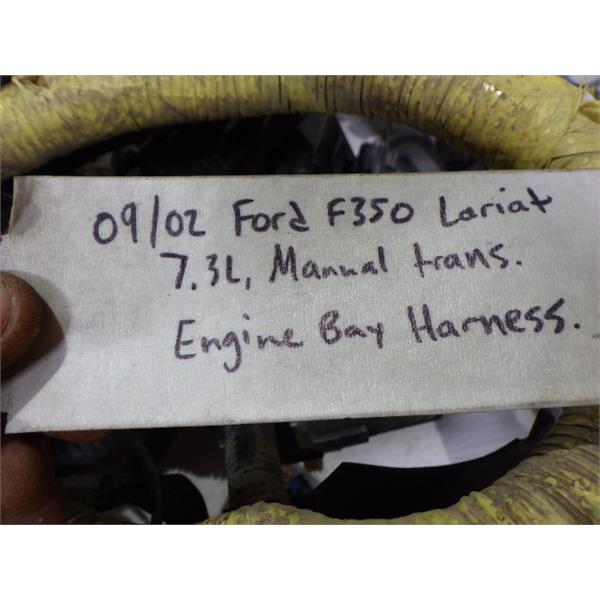 09/02 Ford F350 Lariat
7.3L, Manual trans.
Engine Bay Harness.